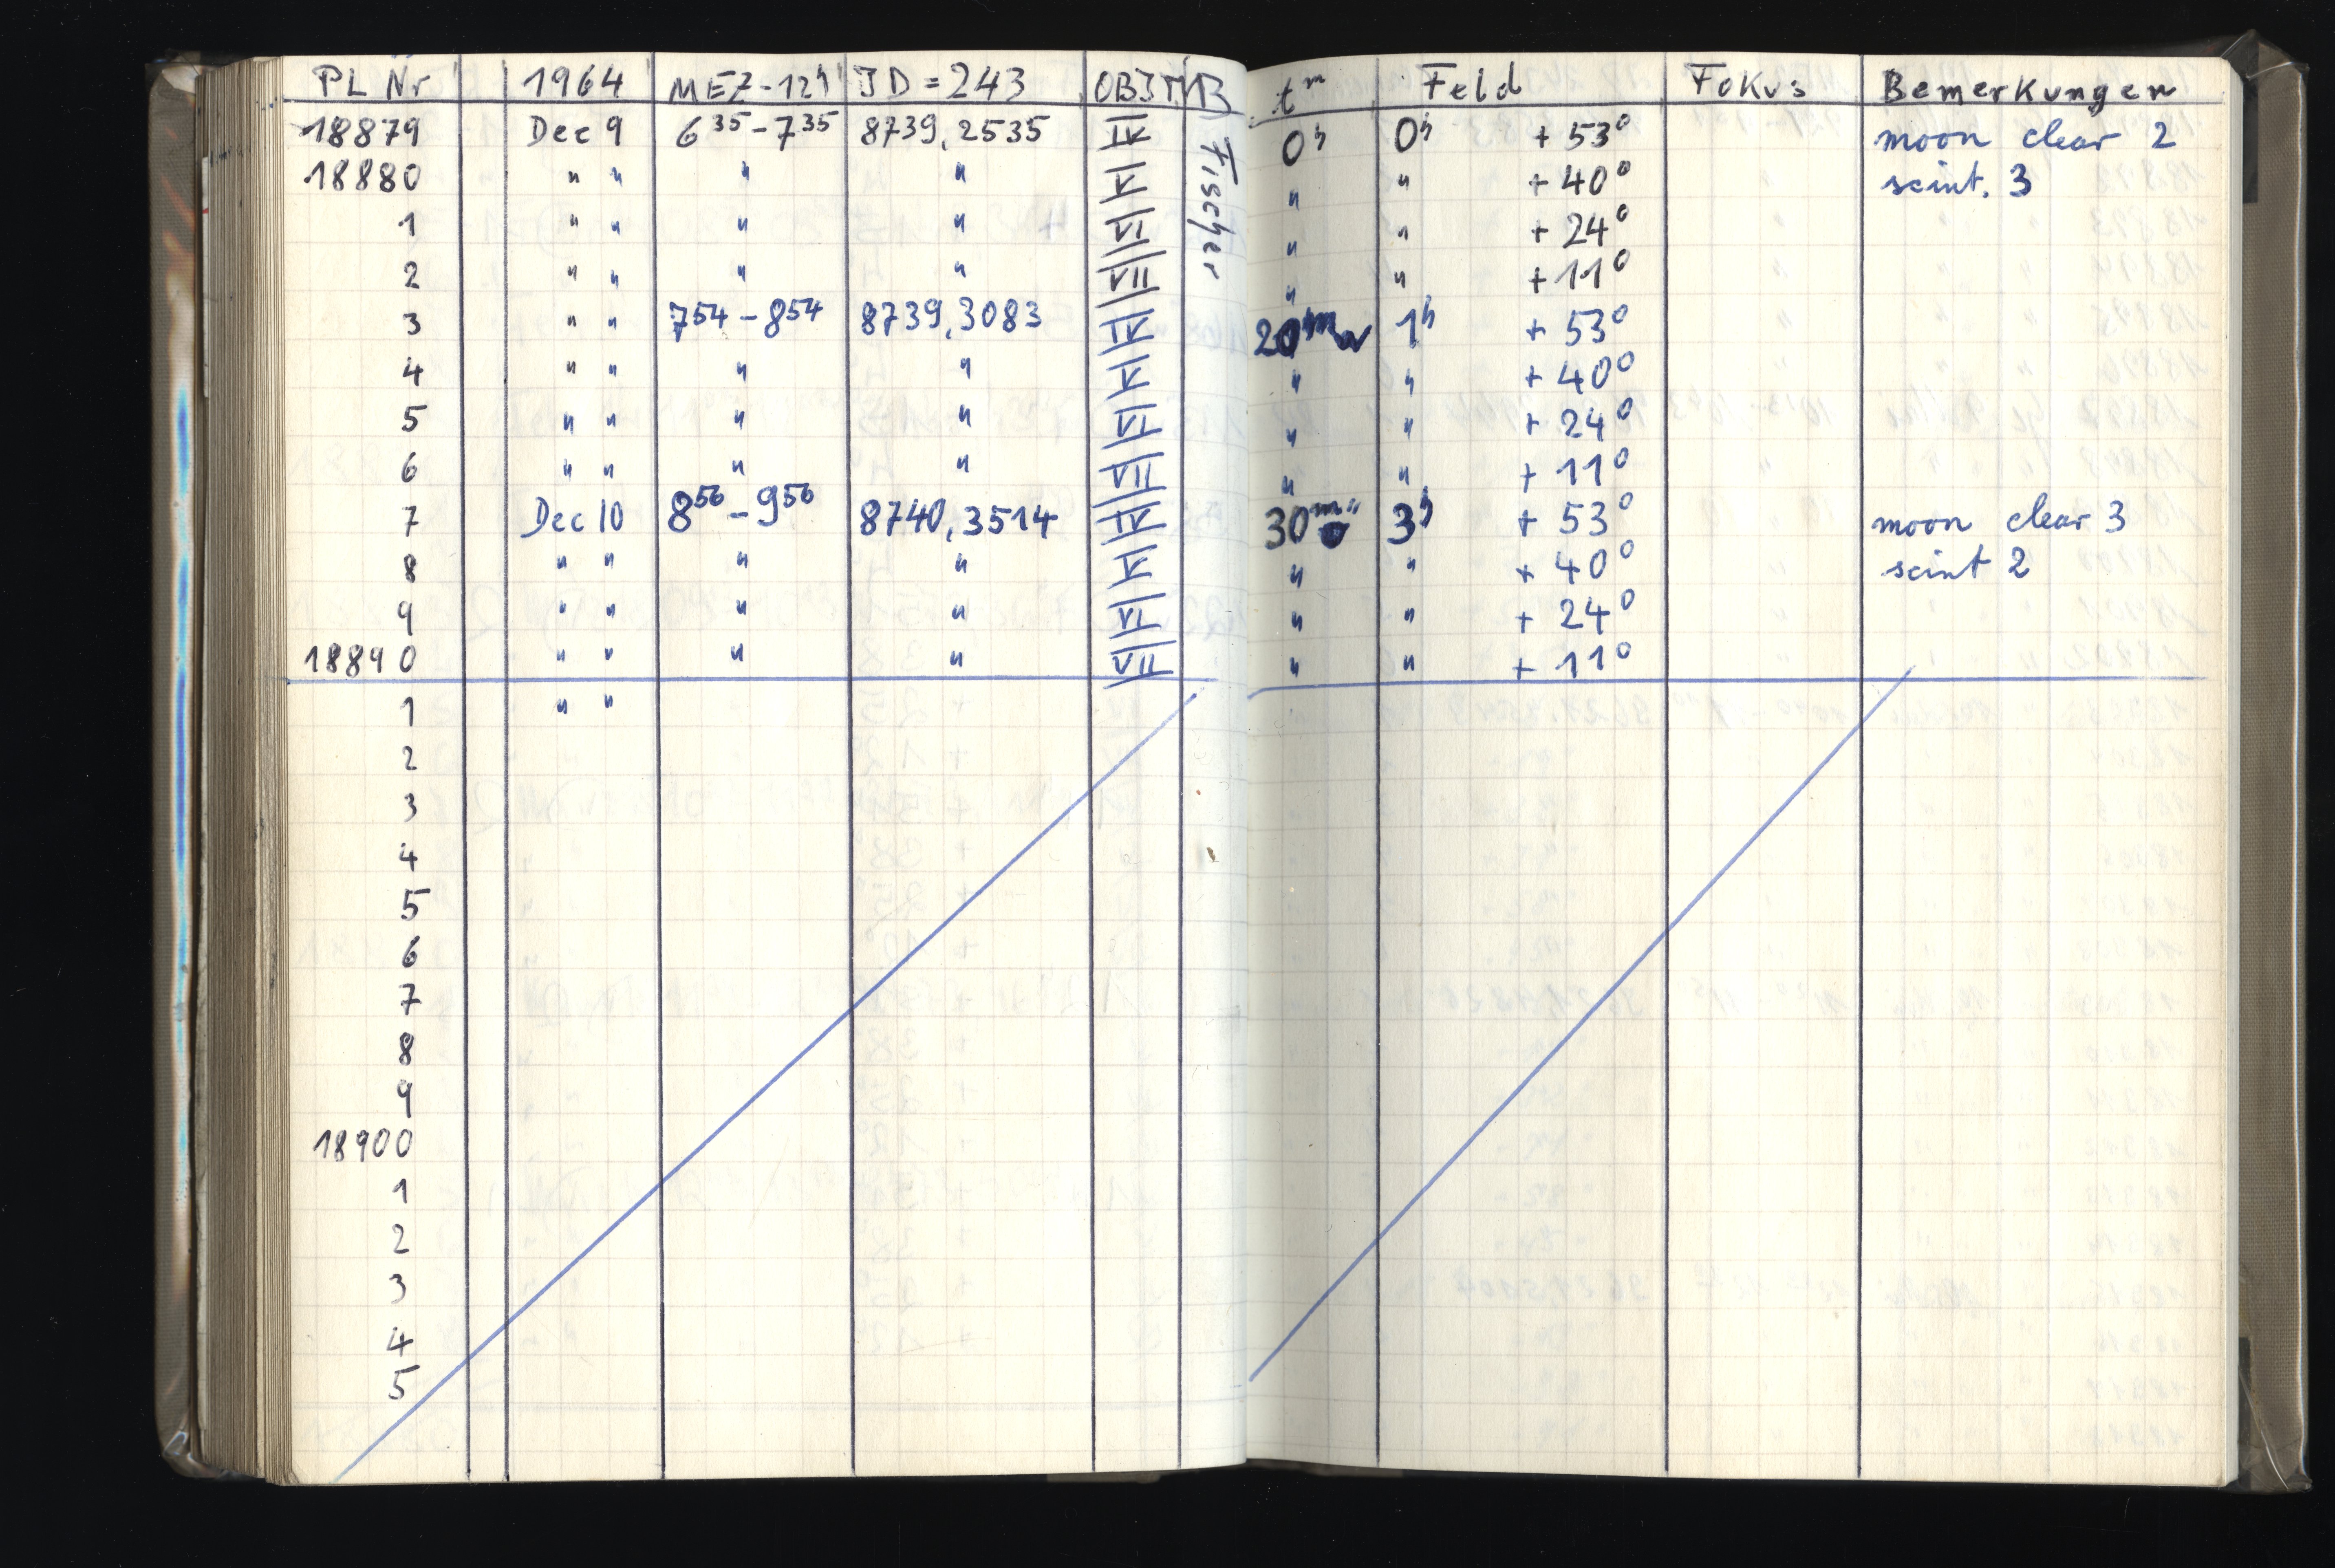 PL Nr 1964 MEZ-12h JD=243 OBJ B tm Feld Fokus Bemerkungen
18879 Dec 9 6 35 - 7 35 8739,2535 IV Fischer 0h 0h + 53° moon clear 2
18880 " " " " V " " + 40° scint. 3
1 " " " " VI " " + 24°
2 " " " " VII " " + 11°
3 " " 7 54 - 8 54 8739,3083 IV 20m 1h + 53°
4 " " " " V " " + 40°
5 " " " " VI " " + 24°
6 " " " " VII " " + 11°
7 Dec 10 8 56 - 9 56 8740,3514 IV 30m 3h + 53° moon clear 3
8 " " " " V " " + 40° scint 2
9 " " " " VI " " + 24°
18890 " " " " VII " " + 11°
1 " "
2
3
4
5
6
7
8
9
18900
1
2
3
4
5